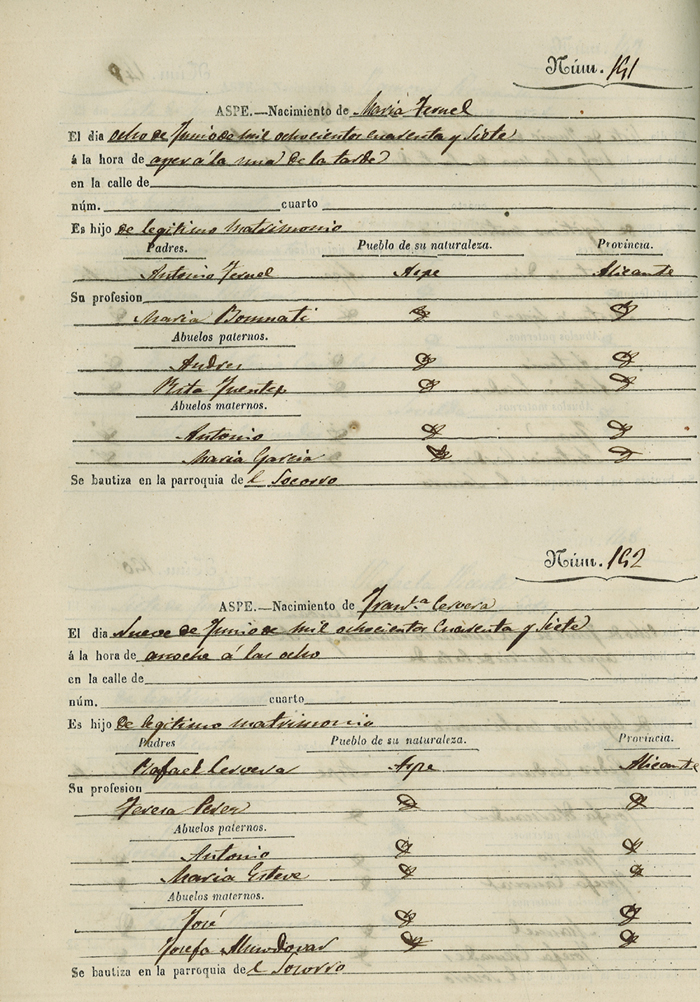 Núm. 151
ASPE.—Nacimiento de Maria Teruel
El dia ocho de Junio de mil ochocientos Cuarenta y Siete
á la hora de ayer á la una de la tarde
en la calle de
núm. cuarto
Es hijo de legitimo matrimonio
Padres. Pueblo de su naturaleza. Provincia.
Antonio Teruel Aspe Alicante
Su profesion
Maria Bonmati D D
Abuelos paternos.
Andres D D
Rita Fuentes D D
Abuelos maternos.
Antonio D D
Maria Garcia D D
Se bautiza en la parroquia de l Socorro
Núm. 152
ASPE.—Nacimiento de Fran.ca Cervera
El dia Nueve de Junio de mil ochocientos Cuarenta y Siete
á la hora de anoche á las ocho
en la calle de
núm. cuarto
Es hijo De legitimo matrimonio
Padres Pueblo de su naturaleza. Provincia.
Rafael Cervera Aspe Alicante
Su profesion
Teresa Perez D D
Abuelos paternos.
Antonio D D
Maria Esteve D D
Abuelos maternos.
José D D
Josefa Almodovar D D
Se bautiza en la parroquia de l Socorro